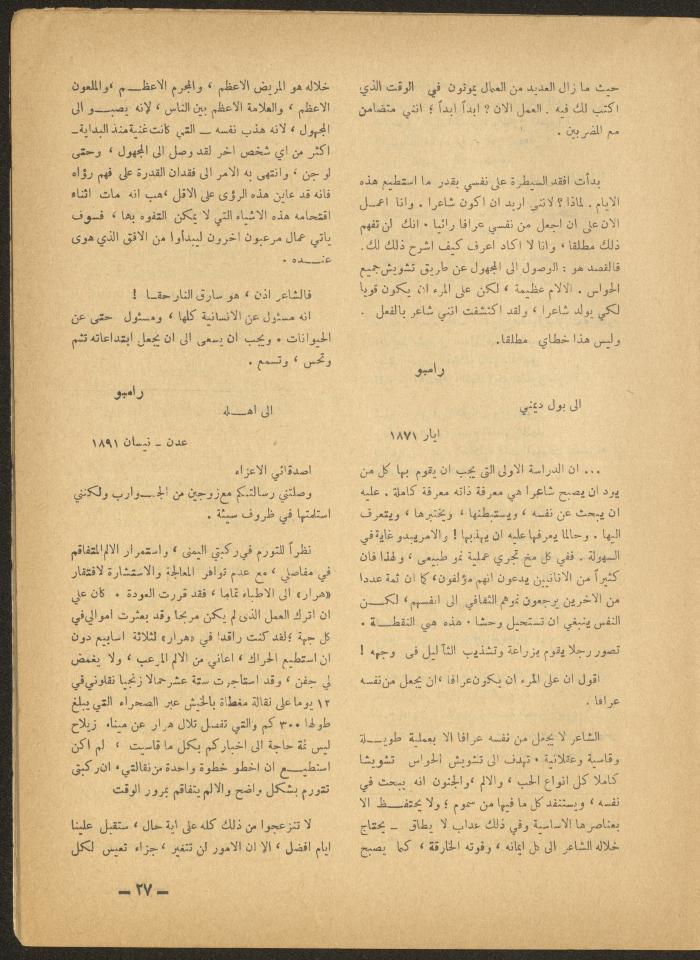 حيث ما زال العديد من العمال يموتون في الوقت الذي
اكتب لك فيه . العمل الان ؟ ابداً ابداً ؛ انني متضامن
مع المضربين .
بدأت افقد السيطرة على نفسي بقدر ما استطيع هذه
الايام . لماذا ؟ لانني اريد ان اكون شاعرا . وانا اعمل
الان على ان اجعل من نفسي عرافا رائيا . انك لن تفهم
ذلك مطلقا ، وانا لا اكاد اعرف كيف اشرح ذلك لك.
فالقصد هو : الوصول الى المجهول عن طريق تشويش جميع
الحواس . الالام عظيمة ، لكن على المرء ان يكون قويا
لكي يولد شاعرا ، ولقد اكتشفت انني شاعر بالفعل .
وليس هذا خطاي مطلقا.
رامبو
الى بول ديمني
ايار ١٨٧١
... ان الدراسة الاولى التي يجب ان يقوم بها كل من
يود ان يصبح شاعرا هي معرفة ذاته معرفة كاملة . عليه
ان يبحث عن نفسه ، ويستبطنها ، ويختبرها ، ويتعرف
اليها . وحالما يعرفها عليه ان يهذبها ! والامر يبدو غاية في
السهولة . ففي كل مخ تجري عملية نمو طبيعى ، ولهذا فان
كثيراً من الانانيين يدعون انهم مؤلفون، كا ان ثمة عددا
من الاخرين يرجعون نموهم الثقافي الى انفسهم، لكن
النفس ينبغي ان تستحيل وحشا . هذه هي النقطة .
تصور رجلا يقوم بزراعة وتشذيب الثآليل فى وجهه !
اقول ان على المرء ان يكون عرافا ، ان يجعل من نفسه
عرافا .
الشاعر لا يجعل من نفسه عرافا الا بعملية طويلة
وقاسية وعقلانية . تهدف الى تشويش الحواس تشويشا
كاملا كل انواع الحب ، والالم ، والجنون انه يبحث في
نفسه ، ويستنفد كل ما فيها من سموم ؛ ولا يحتفظ الا
بعناصرها الاساسية وفي ذلك عذاب لا يطاق ـ يحتاج
خلاله الشاعر الى كل ايمانه ، وقوته الخارقة ، كما يصبح
خلاله هو المريض الاعظم ، والمجرم الاعظم ، والملعون
الاعظم ، والعلامة الاعظم بين الناس ، لإنه يصبو الى
المجهول ، لانه هذب نفسه ـ التي كانت غنية منذ البداية ـ
اكثر من اي شخص اخر لقد وصل الى المجهول ، وحتى
لو جن ، وانتهى به الامر الى فقدان القدرة على فهم رؤاه
فانه قد عاين هذه الرؤى على الاقل ، هب انه مات اثناء
اقتحامه هذه الاشياء التي لا يمكن التفوه بها ، فسوف
ياتي عمال مرعبون اخرون ليبدأوا من الافق الذي هوى
عنده .
فالشاعر اذن ، هو سارق النار حقا !
انه مسئول عن الانسانية كلها ، ومسئول حتى عن
الحيوانات . ويجب ان يسعى الى ان يجعل ابتداعاته تشم
وتحس ، وتسمع .
رامبو
الى اهله
عدن ـ نيسان ١٨٩١
اصدقائي الاعزاء
وصلتني رسالتكم مع زوجين من الجوارب ولكنني
استلمتها في ظروف سيئة .
نظراً للتورم في ركبتي اليمنى ، واستمرار الالم المتفاقم
في مفاصلي ، مع عدم توافر المعالجة والاستشارة لافتقار
«هرار» الى الاطباء تماما ، فقد قررت العودة . كان علي
ان اترك العمل الذى لم يكن مربحا وقد بعثرت اموالي في
كل جهة ؛ لقد كنت راقدا في «هرار» لثلاثة اسابيع دون
ان استطيع الحراك ، اعاني من الالم المرعب ، ولا يغمض
لي جفن ، وقد استاجرت ستة عشر حمالا زنجيا نقلوني في
١٢ يوما على نقالة مغطاة بالخيش عبر الصحراء التي يبلغ
طولها ٣٠٠ كم والتي تفصل تلال هرار عن ميناء زيلاح
ليس ثمة حاجة الى اخباركم بكل ما قاسيت ، لم اكن
استطيع ان اخطو خطوة واحدة من نقالتي . ان ركبتي
تتورم بشكل واضح والالم يتفاقم بمرور الوقت
لا تنزعجوا من ذلك كله على اية حال ، ستقبل علينا
ايام افضل ، الا ان الامور لن تتغير ، جزاء تعيس لكل
ـ ٢٧ ـ